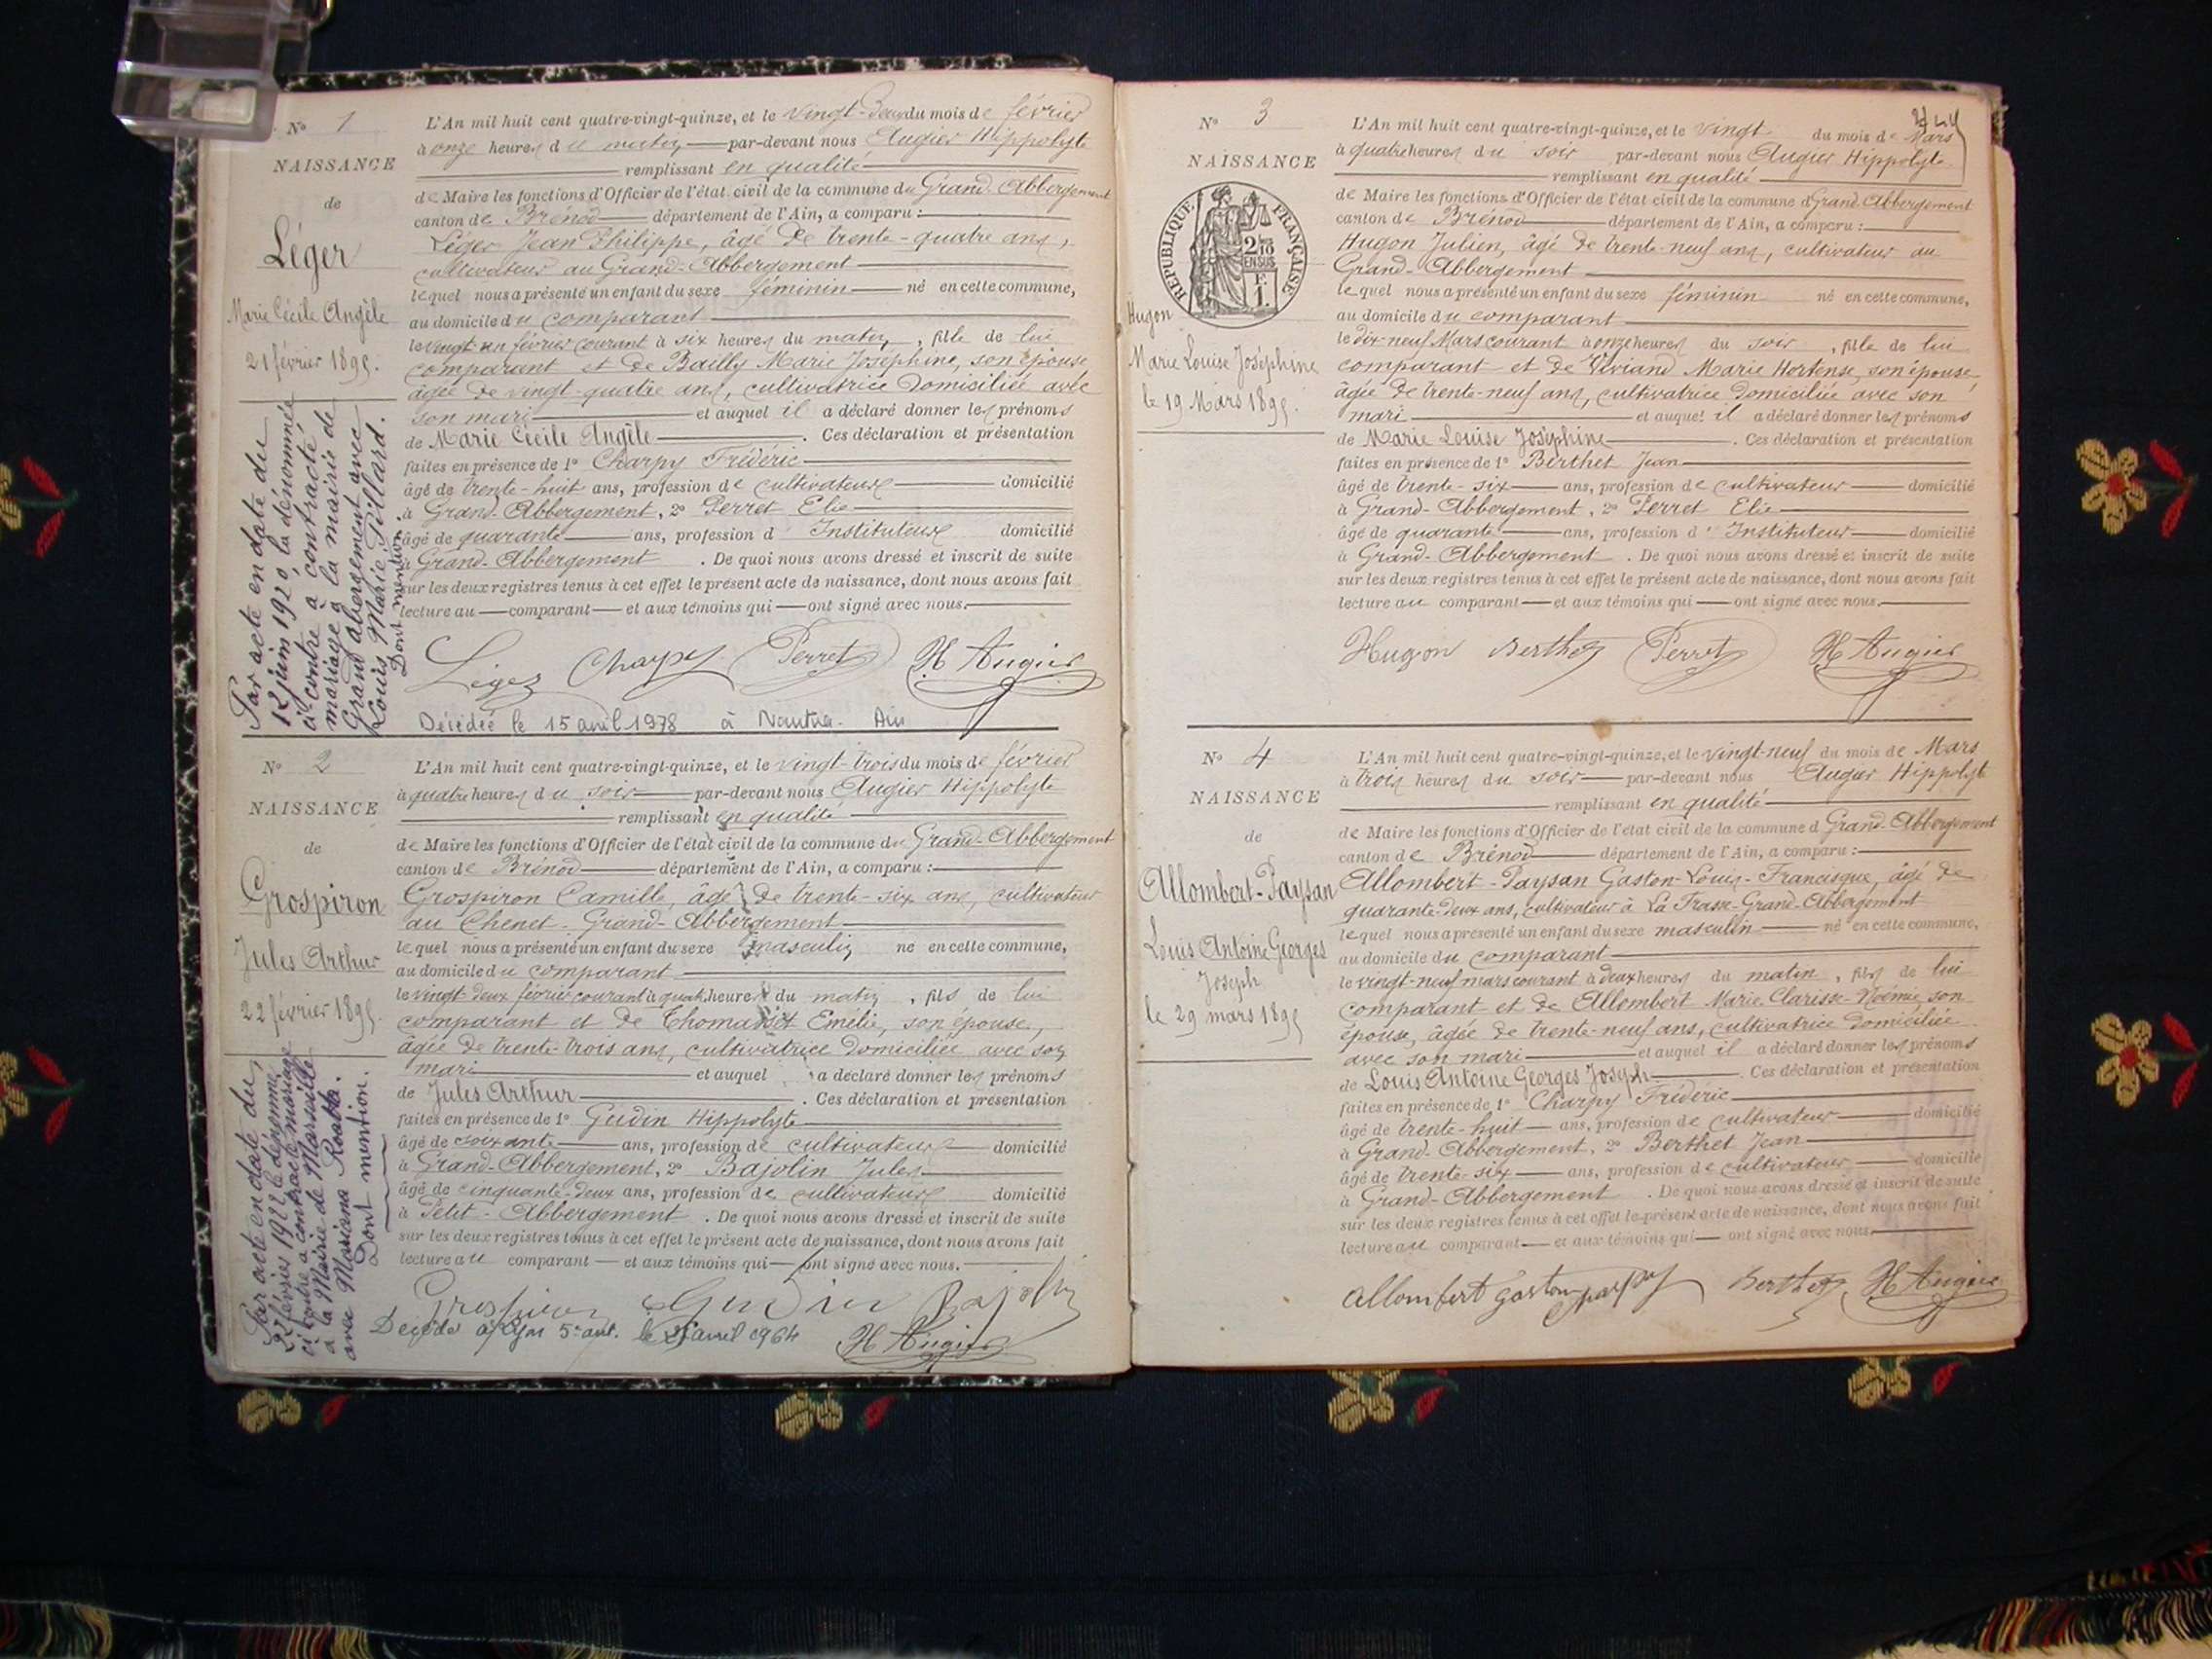 N° 1
NAISSANCE
de
Léger
Marie Cécile Angèle
21 février 1895.
Par acte en date du
12 juin 1920, la dénommée
ci-contre a contracté
mariage à la mairie de
Grand abergement avec
Louis Marie Pillard.
Dont mention.
L'An mil huit cent quatre-vingt-quinze, et le vingt-deux du mois de février
à onze heures du matin par-devant nous Augier Hippolyte
remplissant en qualité
de Maire les fonctions d'Officier de l'état civil de la commune du Grand-Abbergement
canton de Brénod département de l'Ain, a comparu :
Léger Jean Philippe, âgé de trente-quatre ans,
cultivateur au Grand-Abbergement
lequel nous a présenté un enfant du sexe féminin né en cette commune,
au domicile du comparant
le vingt un février courant à six heures du matin, fille de lui
comparant et de Bailly Marie Joséphine, son épouse
âgée de vingt-quatre ans, cultivatrice domiciliée avec
son mari et auquel il a déclaré donner les prénoms
de Marie Cécile Angèle . Ces déclaration et présentation
faites en présence de 1° Charpy Fréderic
âgé de trente-huit ans, profession de cultivateur domicilié
à Grand-Abbergement, 2° Perret Elie
âgé de quarante ans, profession d'Instituteur domicilié
à Grand-Abbergement . De quoi nous avons dressé et inscrit de suite
sur les deux registres tenus à cet effet le présent acte de naissance, dont nous avons fait
lecture au comparant et aux témoins qui ont signé avec nous.
Léger Charpy Perret H Augier
Décédée le 15 avril 1978 à Nantua - Ain
N° 2
NAISSANCE
de
Grospiron
Jules Arthur
22 février 1895.
Par acte en date du
22 février 1922 le dénommé
ci contre a contracté mariage
à la Mairie de Marseille
avec Mariana Rosada.
Dont mention.
L'An mil huit cent quatre-vingt-quinze, et le vingt-trois du mois de février
à quatre heures du soir par-devant nous Augier Hippolyte
remplissant en qualité
de Maire les fonctions d'Officier de l'état civil de la commune du Grand-Abbergement
canton de Brénod département de l'Ain, a comparu :
Grospiron Camille, âgé de trente-six ans, cultivateur
au Chenet-Grand-Abbergement
lequel nous a présenté un enfant du sexe masculin né en cette commune,
au domicile du comparant
le vingt-deux février courant à quatre heures du matin, fils de lui
comparant et de Thomasset Emélie, son épouse,
âgée de trente-trois ans, cultivatrice domiciliée avec son
mari et auquel a déclaré donner les prénoms
de Jules Arthur . Ces déclaration et présentation
faites en présence de 1° Gudin Hippolyte
âgé de soixante ans, profession de cultivateur domicilié
à Grand-Abbergement, 2° Bajolin Jules
âgé de cinquante-deux ans, profession de cultivateur domicilié
à Petit-Abbergement . De quoi nous avons dressé et inscrit de suite
sur les deux registres tenus à cet effet le présent acte de naissance, dont nous avons fait
lecture au comparant et aux témoins qui ont signé avec nous.
Grospiron Gudin Bajolin
Décédé à Lyon 5e arr. le avril 1964 H Augier
N° 3
NAISSANCE
RÉPUBLIQUE FRANÇAISE
2/10 EN SUS
F. 1.
Hugon
Marie Louise Joséphine
le 19 Mars 1895.
L'An mil huit cent quatre-vingt-quinze, et le vingt du mois de Mars
à quatre heures du soir par-devant nous Augier Hippolyte
remplissant en qualité
de Maire les fonctions d'Officier de l'état civil de la commune d Grand-Abbergement
canton de Brénod département de l'Ain, a comparu :
Hugon Julien, âgé de trente-neuf ans, cultivateur au
Grand-Abbergement
lequel nous a présenté un enfant du sexe féminin né en cette commune,
au domicile du comparant
le dix-neuf Mars courant à onze heures du soir, fille de lui
comparant et de Viviand Marie Hortense, son épouse,
âgée de trente-neuf ans, cultivatrice domiciliée avec son
mari et auquel il a déclaré donner les prénoms
de Marie Louise Joséphine . Ces déclaration et présentation
faites en présence de 1° Berthet Jean
âgé de trente-six ans, profession de cultivateur domicilié
à Grand-Abbergement, 2° Perret Elie
âgé de quarante ans, profession d'Instituteur domicilié
à Grand-Abbergement . De quoi nous avons dressé et inscrit de suite
sur les deux registres tenus à cet effet le présent acte de naissance, dont nous avons fait
lecture au comparant et aux témoins qui ont signé avec nous.
Hugon Berthet Perret H Augier
N° 4
NAISSANCE
de
Allombert-Paysan
Louis Antoine Georges
Joseph
le 29 mars 1895
L'An mil huit cent quatre-vingt-quinze, et le vingt-neuf du mois de Mars
à trois heures du soir par-devant nous Augier Hippolyte
remplissant en qualité
de Maire les fonctions d'Officier de l'état civil de la commune d Grand-Abbergement
canton de Brénod département de l'Ain, a comparu :
Allombert-Paysan Gaston-Louis-Francisque, âgé de
quarante-deux ans, cultivateur à La Frasse-Grand-Abbergement
lequel nous a présenté un enfant du sexe masculin né en cette commune,
au domicile du comparant
le vingt-neuf mars courant à deux heures du matin, fils de lui
comparant et de Allombert Marie-Clarisse-Noémie, son
épouse, âgée de trente-neuf ans, cultivatrice domiciliée
avec son mari et auquel il a déclaré donner les prénoms
de Louis Antoine Georges Joseph . Ces déclaration et présentation
faites en présence de 1° Charpy Fréderic
âgé de trente-huit ans, profession de cultivateur domicilié
à Grand-Abbergement, 2° Berthet Jean
âgé de trente-six ans, profession de cultivateur domicilié
à Grand-Abbergement . De quoi nous avons dressé et inscrit de suite
sur les deux registres tenus à cet effet le présent acte de naissance, dont nous avons fait
lecture au comparant et aux témoins qui ont signé avec nous.
Allombert Gaston paysan Berthet H Augier